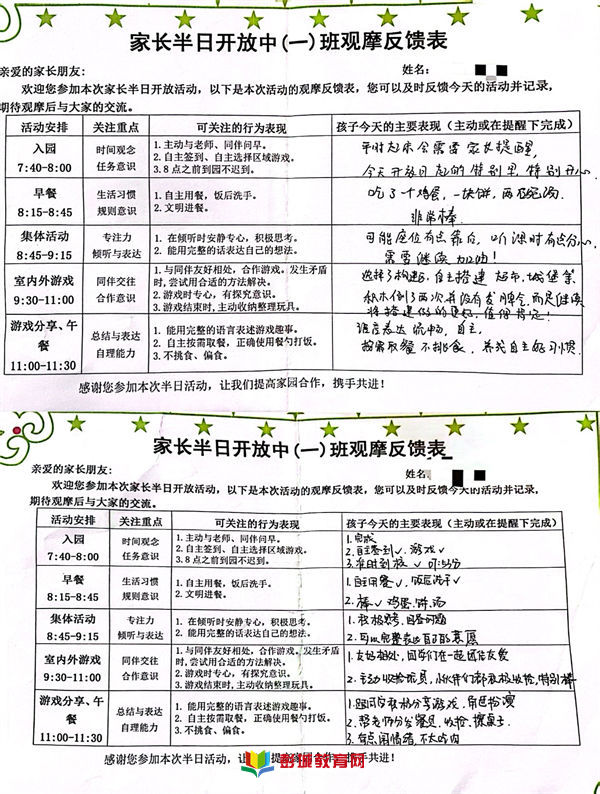 家长半日开放中(一)班观摩反馈表
亲爱的家长朋友: 姓名:
欢迎您参加本次家长半日开放活动，以下是本次活动的观摩反馈表，您可以及时反馈今天的活动并记录，
期待观摩后与大家的交流。
活动安排 关注重点 可关注的行为表现 孩子今天的主要表现（主动或在提醒下完成）
入园
7:40-8:00
时间观念
任务意识
1.主动与老师、同伴问早。
2.自主签到、自主选择区域游戏。
3.8点之前到园不迟到。
平时起床会需要家长提醒,
今天开放日起的特别早,特别开心
早餐
8:15-8:45
生活习惯
规则意识
1.自主用餐，饭后洗手。
2.文明进餐。
吃了个鸡蛋,一块饼,两碗汤
非常棒
集体活动
8:45-9:15
专注力
倾听与表达
1.在倾听时安静专心，积极思考。
2.能用完整的话表达自己的想法。
可能座位有点靠后,听课时有点分心
需要继续加油!
室内外游戏
9:30-11:00
同伴交往
合作意识
1.与同伴友好相处，合作游戏。发生矛盾
时,尝试用合适的方法解决。
2.游戏时专心，有探究意识。
3.游戏结束时,主动收纳整理玩具。
选择了构建,自主搭建超市,城堡等
积木倒了两次并没有发脾气,而是继续
游戏分享、午
餐
11:00-11:30
总结与表达
自理能力
1.能用完整的语言表述游戏趣事。
2.自主按需取餐，正确使用餐勺打饭。
3.不挑食、偏食。
语言表达流畅,自主.
按需取餐不挑食,养成自主好习惯.
感谢您参加本次半日活动，让我们提高家园合作，携手共进！
家长半日开放中(一)班观摩反馈表
亲爱的家长朋友: 姓名
欢迎您参加本次家长半日开放活动，以下是本次活动的观摩反馈表，您可以及时反馈今天的活动并记录，
期待观摩后与大家的交流。
活动安排 关注重点 可关注的行为表现 孩子今天的主要表现（主动或在提醒下完成）
入园
7:40-8:00
时间观念
任务意识
1.主动与老师、同伴问早。
2.自主签到、自主选择区域游戏。
3.8点之前到园不迟到。
1.完成
2.自主签到✓ 游戏✓
3.准时到校✓
早餐
8:15-8:45
生活习惯
规则意识
1.自主用餐，饭后洗手。
2.文明进餐。
1.自主用餐✓ 饭后洗手✓
2.棒✓ 鸡蛋.饼.汤
集体活动
8:45-9:15
专注力
倾听与表达
1.在倾听时安静专心，积极思考。
2.能用完整的话表达自己的想法。
1.积极思考,回答问题
2.可以完整表达自己的意愿
室内外游戏
9:30-11:00
同伴交往
合作意识
1.与同伴友好相处，合作游戏。发生矛盾
时,尝试用合适的方法解决。
2.游戏时专心，有探究意识。
3.游戏结束时,主动收纳整理玩具。
1.友好相处,同学们在一起团结友爱
2.主动收拾玩具,小伙伴们都积极收拾,特别棒
游戏分享、午
餐
11:00-11:30
总结与表达
自理能力
1.能用完整的语言表述游戏趣事。
2.自主按需取餐，正确使用餐勺打饭。
3.不挑食、偏食。
积极分享游戏,角色扮演
2.帮老师分发餐具,收拾,擦桌子
3.有点闹情绪,不太吃肉
感谢您参加本次半日活动，让 提高家园合作，携手共进！
教育网